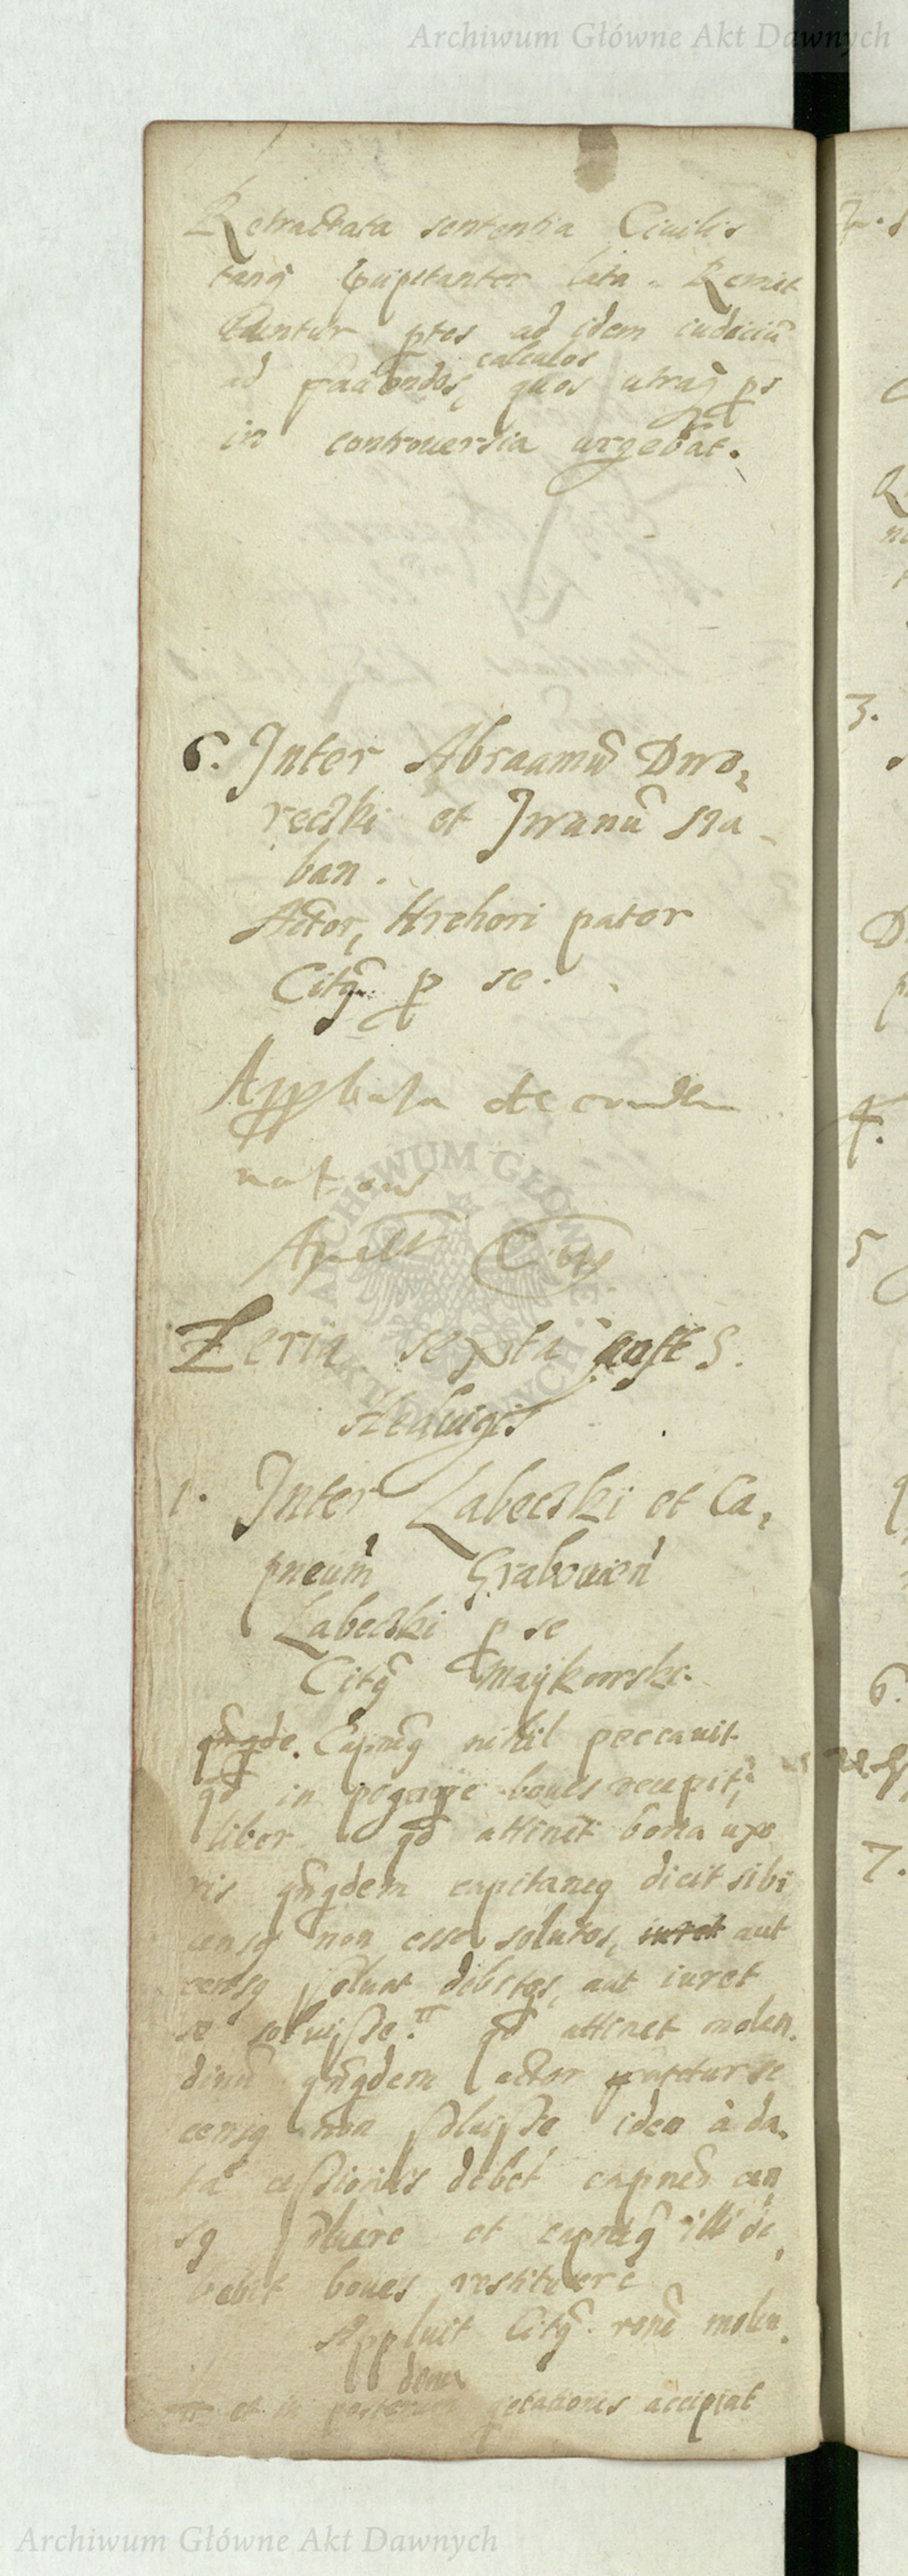 Archiwum Główne Akt Dawnych
Retractata sententia Civilis
tanq̃ lata. Remit
tuntur ptes ad idem iudiciũ
calculos
ad faciendos, quos utraq̃ ps
in controuersia urgebãt.
6. Inter Abraamũ Dwo,
reczki et Jwanũ Sza
ban.
Actor, Hrehori pater
Citq̃ p se.
Appellata de
Apellt Citq
Feria sexta post S.
Heduigis
1. Inter Labeczki et Ca,
pneum Grabouien
Labeczki p se
Citq̃ Maykowski.
nihil peccauit
qd in boues recepit,
liber qd attinet bona uxo
ris qñqdem capitaneq dicit sibi
censq non esse solutos, iuret aut
censq soluat debitos, aut iuret
se soluisse. qd attinet molen.
dinũ qñqdem actor fatetur se
censq non soluisse ideo à da,
ta cessionis debet capneo cen
sq soluere et capneq̃ illi de,
bebit boues restituere
Appluit Citq̃ rone molen.
deni
et in posterum accipiat
Archiwum Główne Akt Dawnych